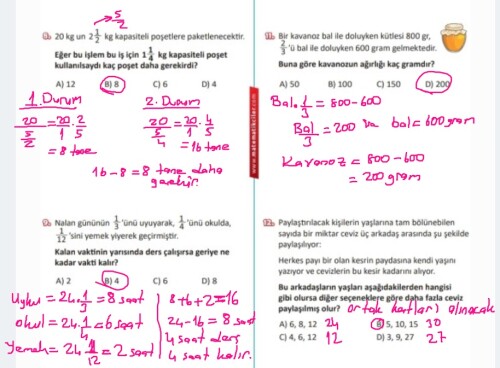 5/2
20 kg un 2 1/2 kg kapasiteli poşetlere paketlenecektir.
Eğer bu işlem bu iş için 1 1/4 kg kapasiteli poşet
kullanılsaydı kaç poşet daha gerekirdi?
A) 12 B) 8 C) 6 D) 4
1. Durum
20/(5/2) = 20/1 . 2/5
= 8 tane
2. Durum
20/(5/4) = 20/1 . 4/5
= 16 tane
16-8 = 8 tane daha
gerekir.
Bir kavanoz bal ile doluyken kütlesi 800 gr,
2/3'ü bal ile doluyken 600 gram gelmektedir.
Buna göre kavanozun ağırlığı kaç gramdır?
A) 50 B) 100 C) 150 D) 200
Bal . 1/3 = 800-600
Bal/3 = 200 ve bal = 600 gram
Kavanoz = 800-600
= 200 gram
www.matematikciler.com
Nalan gününün 1/3'ünü uyuyarak, 1/4'ünü okulda,
1/12'sini yemek yiyerek geçirmiştir.
Kalan vaktinin yarısında ders çalışırsa geriye ne
kadar vakti kalır?
A) 2 B) 4 C) 6 D) 8
Uyku = 24 . 1/3 = 8 saat
okul = 24 . 1/4 = 6 saat
yemek = 24 . 1/12 = 2 saat
8+6+2=16
24-16 = 8 saat
4 saat ders
4 saat kalır.
Paylaştırılacak kişilerin yaşlarına tam bölünebilen
sayıda bir miktar ceviz üç arkadaş arasında şu şekilde
paylaşılıyor:
Herkes payı bir olan kesrin paydasına kendi yaşını
yazıyor ve cevizlerin bu kesir kadarını alıyor.
Bu arkadaşların yaşları aşağıdakilerden hangisi
gibi olursa diğer seçeneklere göre daha fazla ceviz
paylaşılmış olur? ortak katları alınacak
A) 6, 8, 12 24 B) 5, 10, 15 30
C) 4, 6, 12 12 D) 3, 9, 27 27